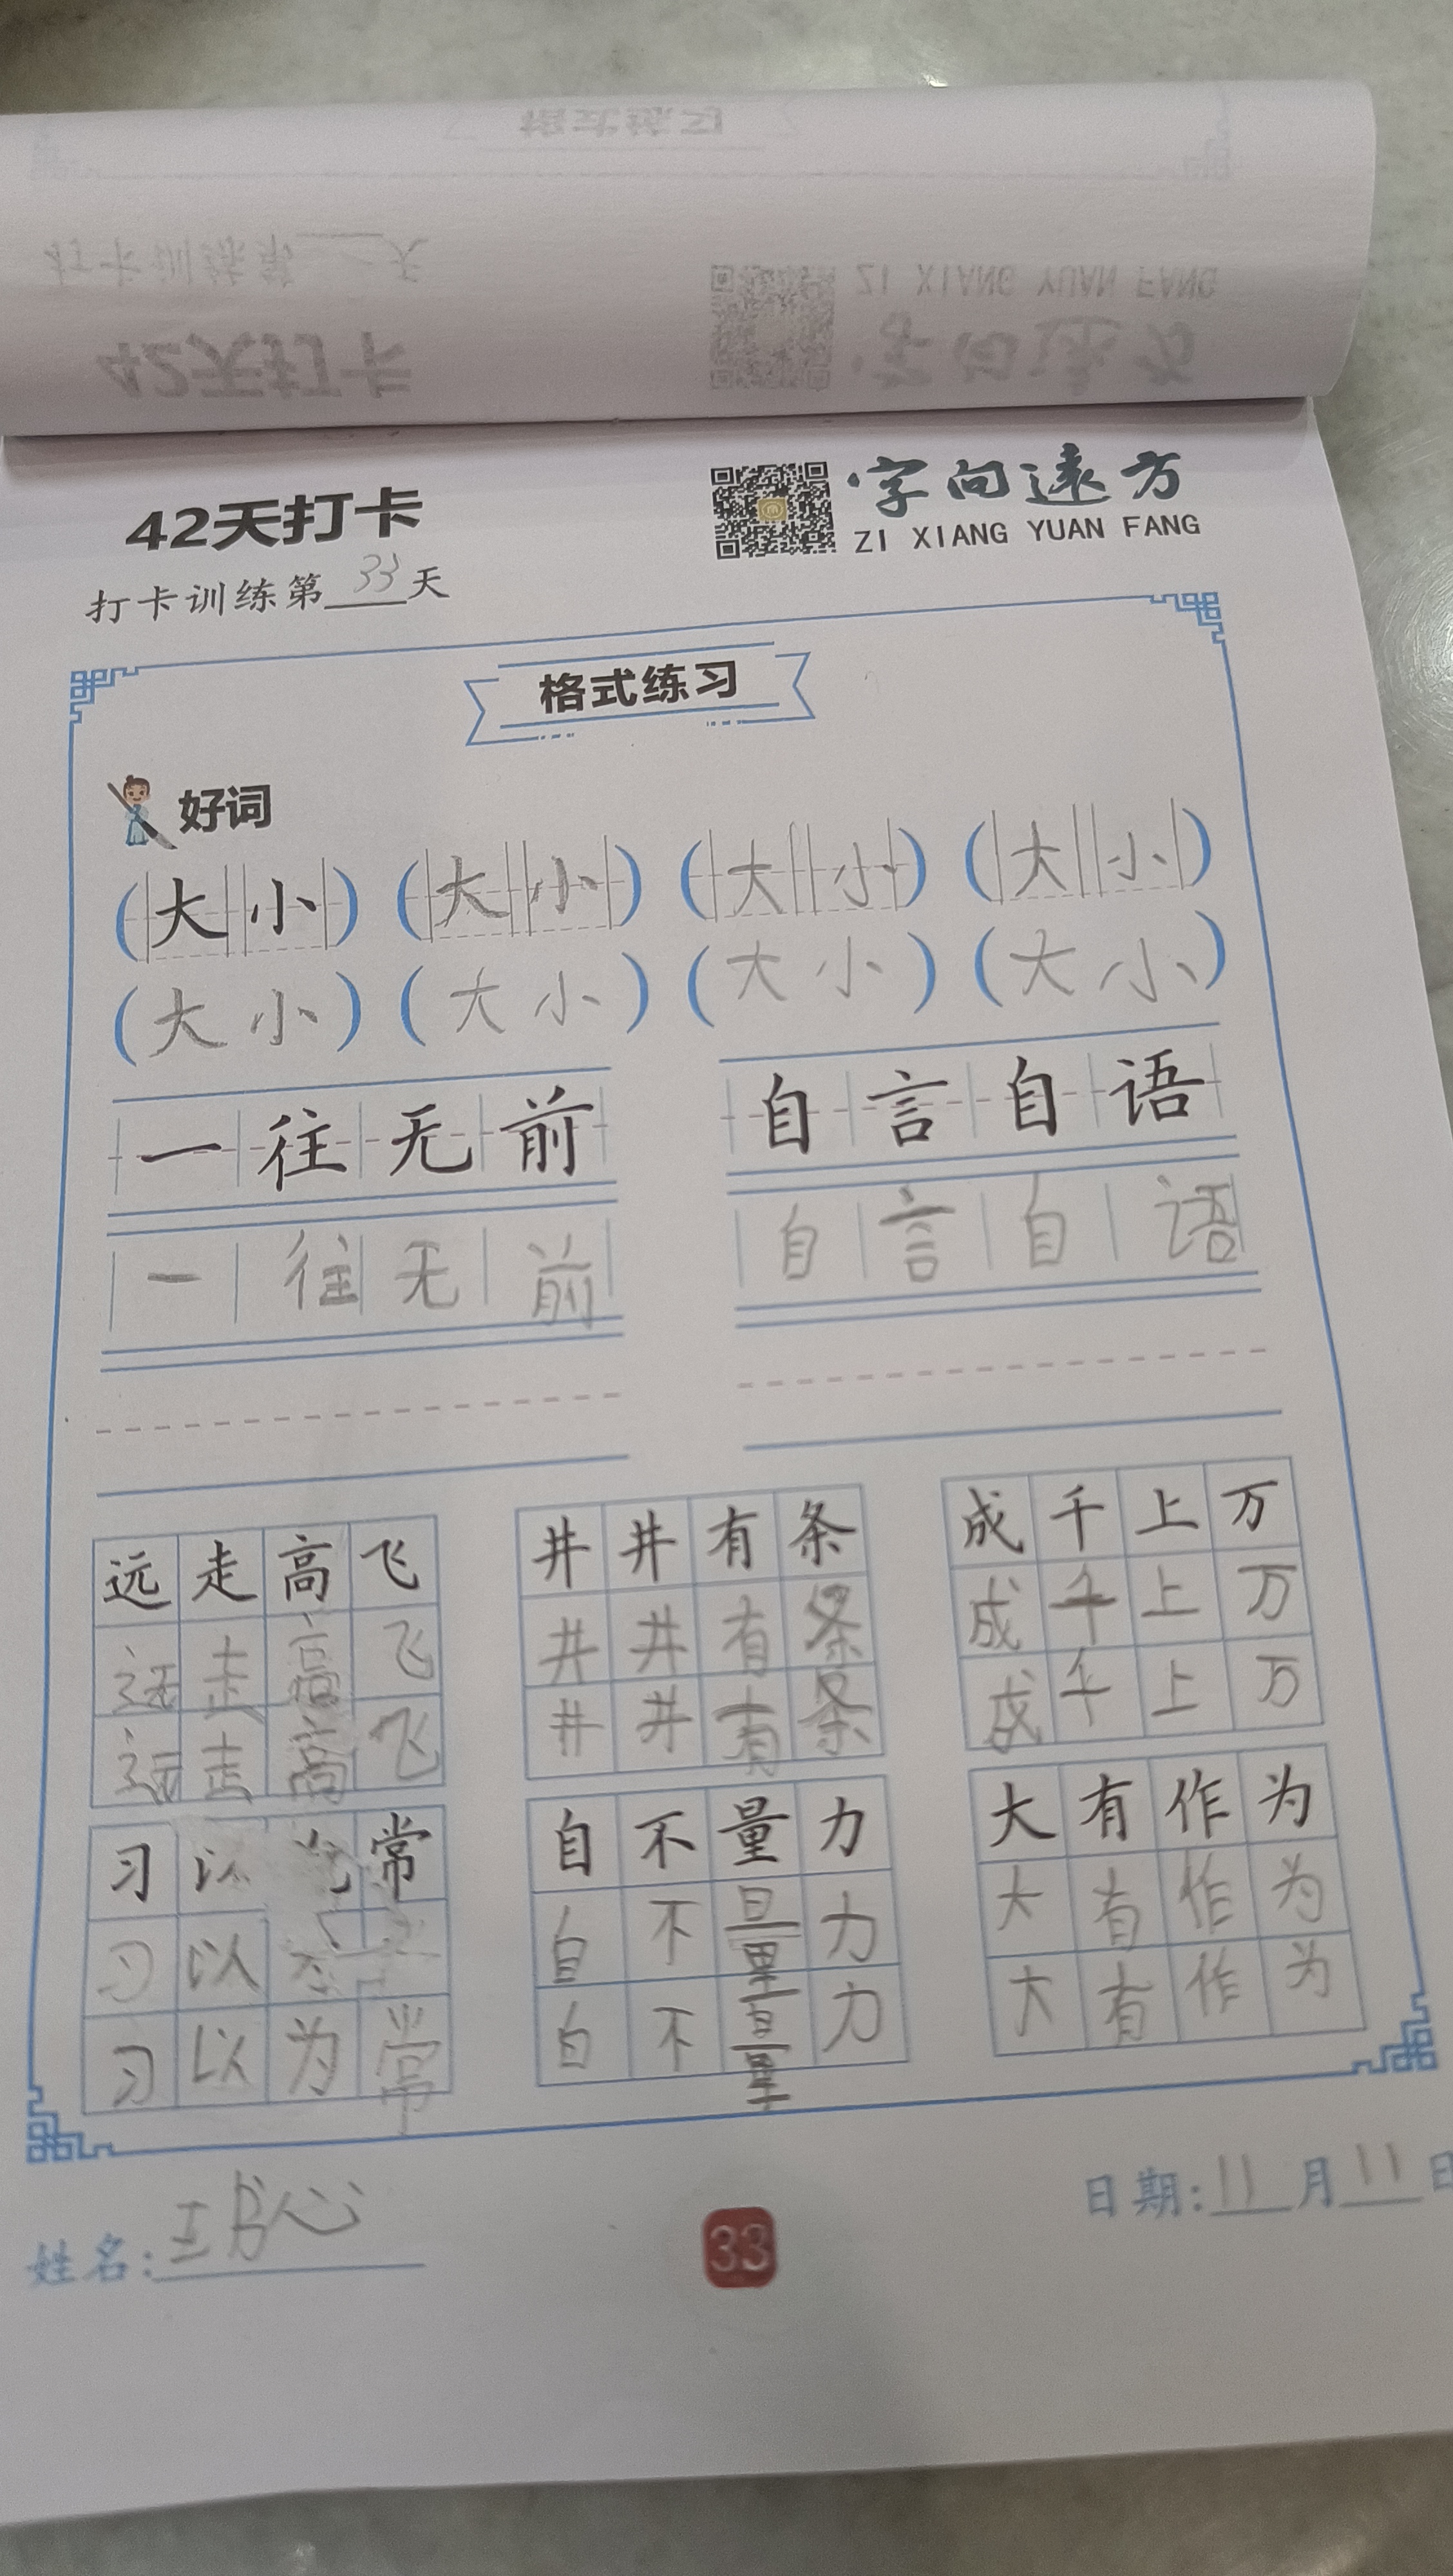 42天打卡
字向遠方
ZI XIANG YUAN FANG
打卡训练第33天
格式练习
好词
(大小) (大小) (大小) (大小)
(大小) (大小) (大小) (大小)
一往无前 自言自语
一往无前 自言自语
远走高飞 井井有条 成千上万
远走高飞 井井有条 成千上万
远走高飞 井井有条 成千上万
习以 常 自不量力 大有作为
习以 自不量力 大有作为
习以为常 自不量力 大有作为
姓名:王书心
33
日期:11月11日